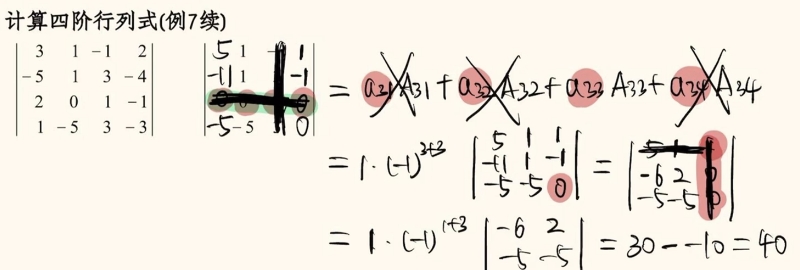 计算四阶行列式(例7续)
3 1 -1 2
-5 1 3 -4
2 0 1 -1
1 -5 3 -3
5 1 1
-11 1 -1
0 0 0
-5 -5 0
= a31A31 + a32A32 + a33A33 + a34A34
= 1·(-1)^{3+3} |5 1 1| = |5 1 1|
|-11 1 -1| |-6 2 0|
|-5 -5 0| |-5 -5 0|
= 1·(-1)^{1+3} |-6 2| = 30 - -10 = 40
|-5 -5|